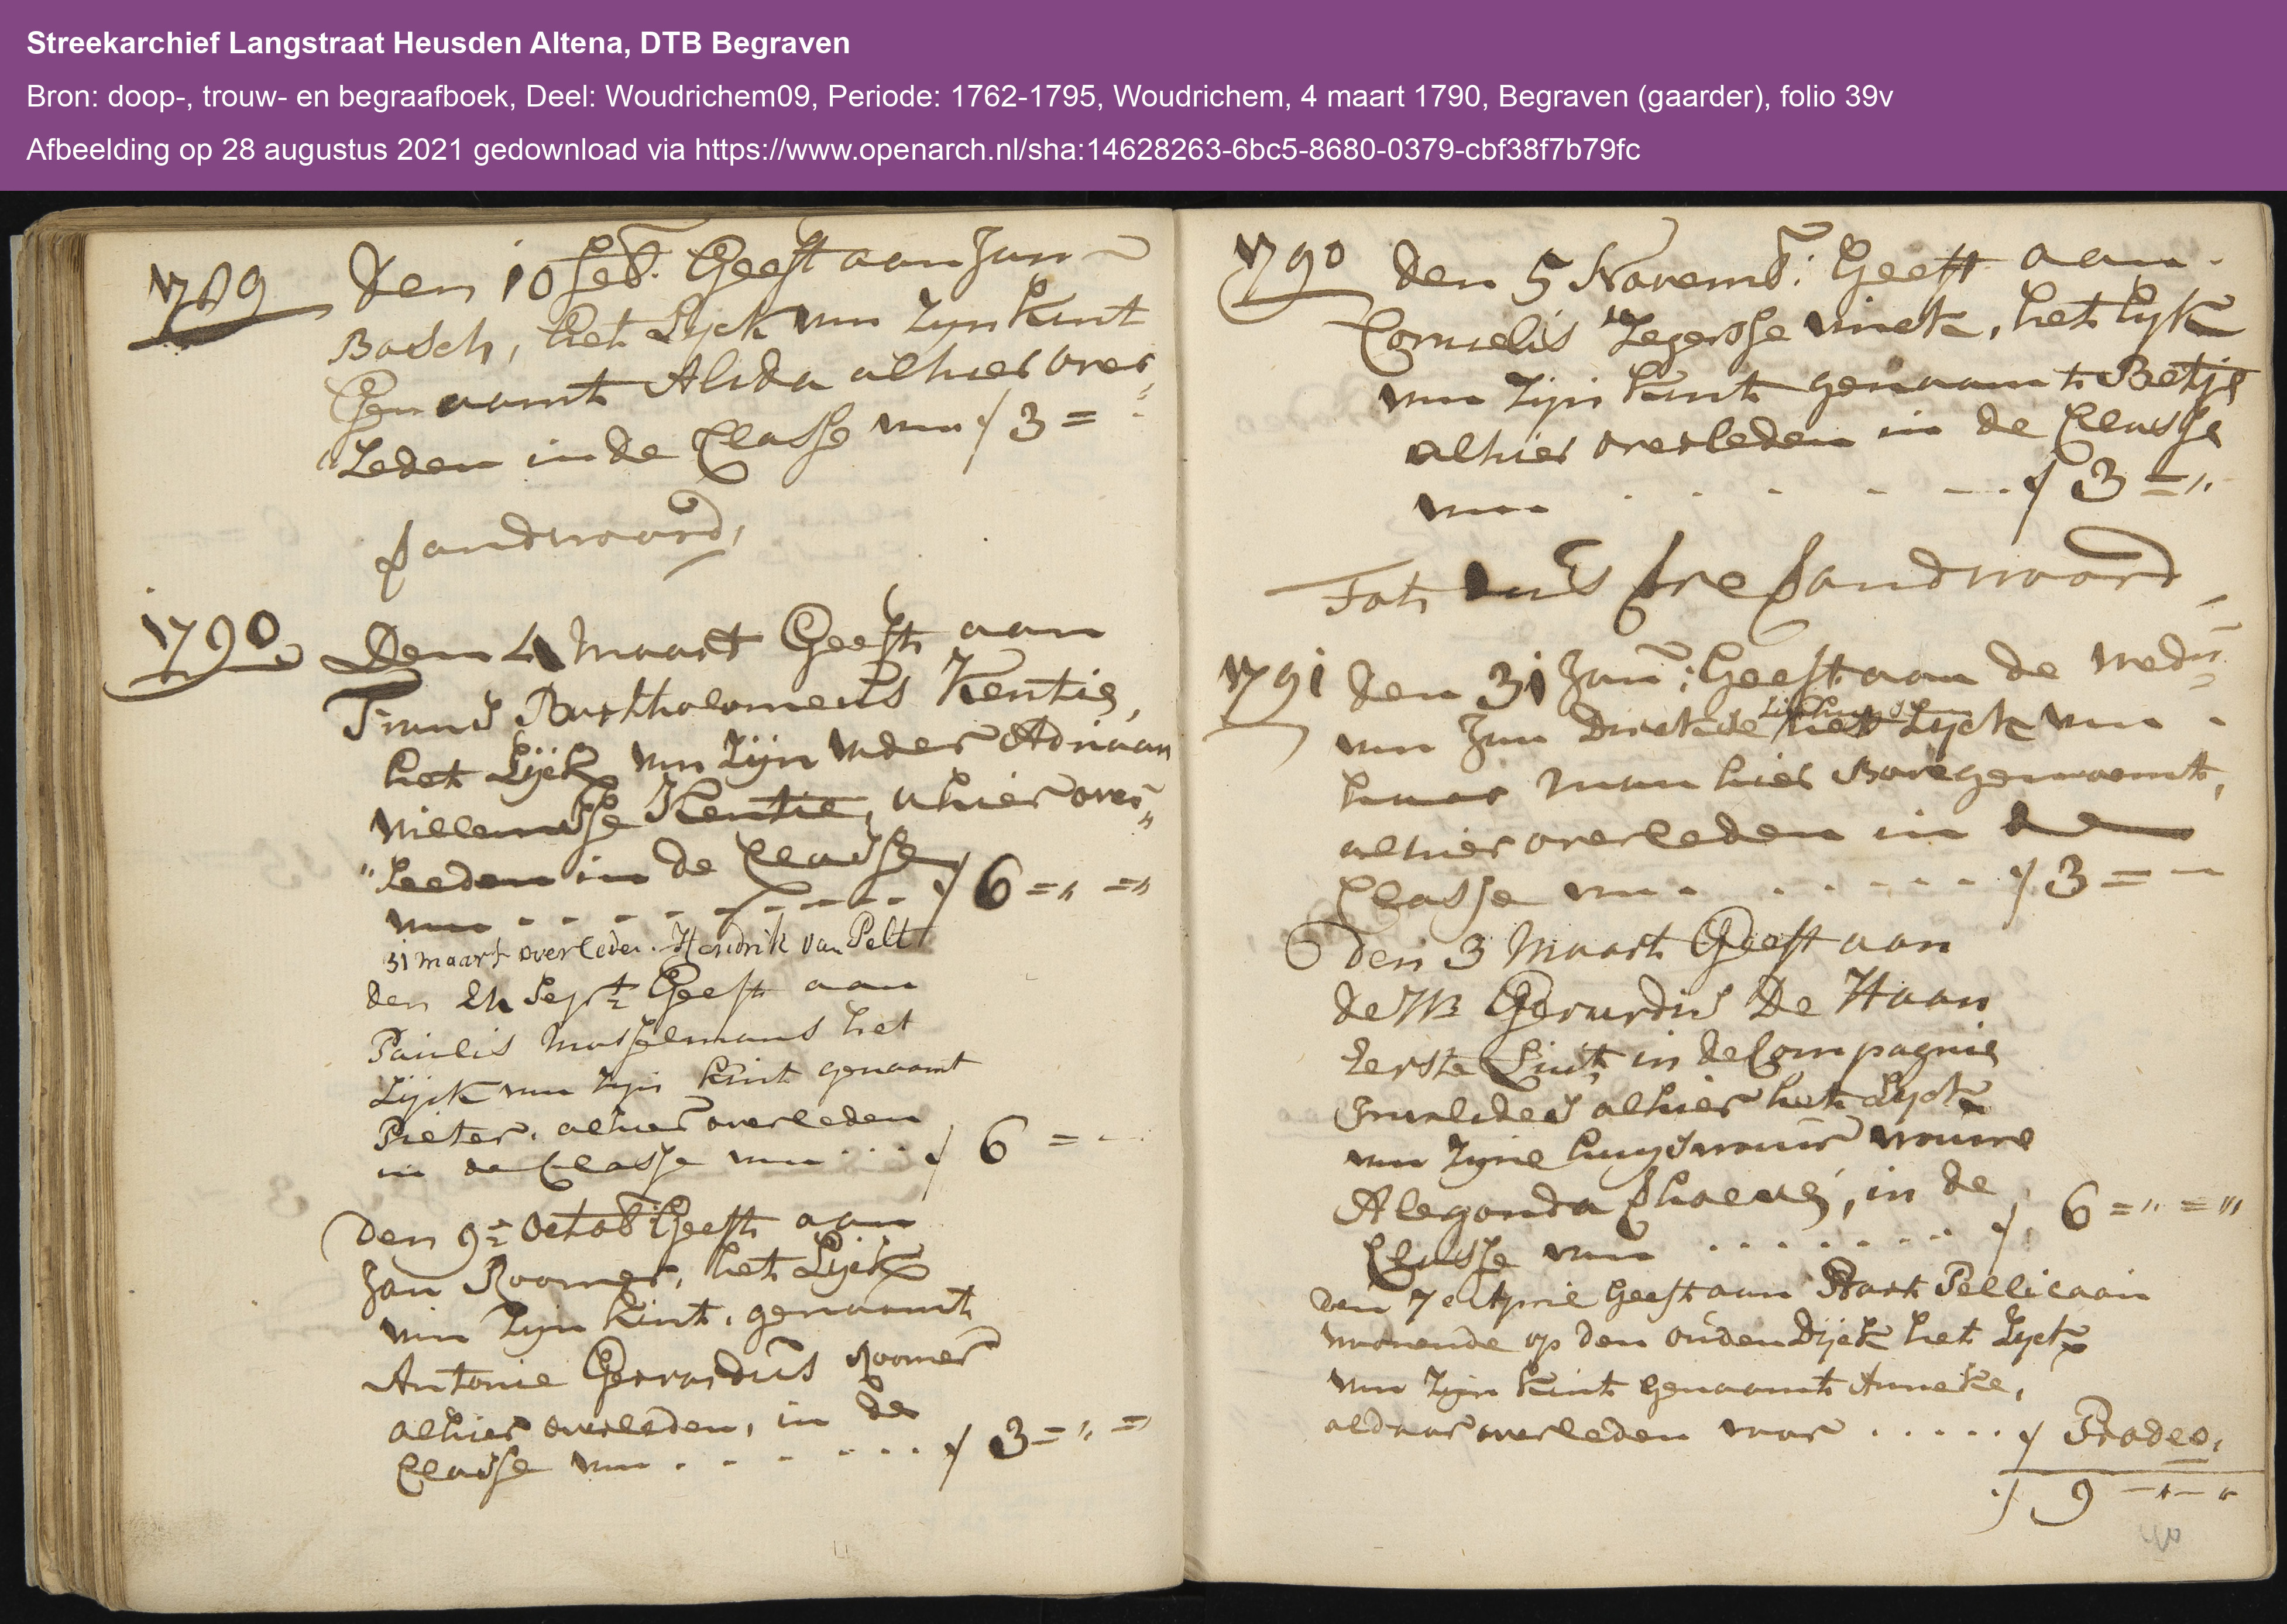 Streekarchief Langstraat Heusden Altena, DTB Begraven
Bron: doop-, trouw- en begraafboek, Deel: Woudrichem09, Periode: 1762-1795, Woudrichem, 4 maart 1790, Begraven (gaarder), folio 39v
Afbeelding op 28 augustus 2021 gedownload via https://www.openarch.nl/sha:14628263-6bc5-8680-0379-cbf38f7b79fc
1789 Den 10 feb. Geeft aan Jan
Bosch, het Lyck van zyn kint
Genaamt Alida alhier over
Leden in de Classe van f 3 =
Sandwoord,
1790 Den 4 Maart Geeft aan
Frans Bartholomeus Kentie,
het Lijck van Zijn vader Adriaan
willemsse Kentie, alhier over
"Leeden in de Classe
van . . . . . . . . f 6 = " = "
31 maart overleden. Hendrik van Pelt
den 24 Sept Geeft aan
Paulis Mosselmans het
Lijck van zyn kint genaamt
Pieter. alhier overleden
in de Classe van . . . f 6 = -
Den 9e Octob Geeft aan
Jan Roomer, het Lijck
van Zyn kint, genaamt
Antonie Gerrardus Roomer
alhier overleden, in de
Classe van . . . . . . f 3 = " =
1790 den 5 Novemb: Geeft aan
Cornelis Zegersse vinck, het lyk
van Zijn kint genaamt Betje
alhier overleden in de Classe
van . . . . . f 3 = "
Sandwoord
1791 den 31 Jan: Geeft aan de wedu
van Jan het Lyck van
haar man hier Bovegenaemt,
alhier overleden in de
Classe van . . . . . . f 3 = -
Den 3 Maart Geeft aan
de Gerardus De Haan
Eerste Luit in de Compagnie
alhier het Lyck
van Zyne huysvrouw vrouwe
Alegonda , in de
Classe van . . . . . . . f 6 = " = "
den 7e April Geeft aan Bart Pellicaan
wonende op den oudendijck het Lyck
van Zijn kint genaamt Anneke,
aldaar overleden voor . . . . . f Prodeo,
f 9 - " - "